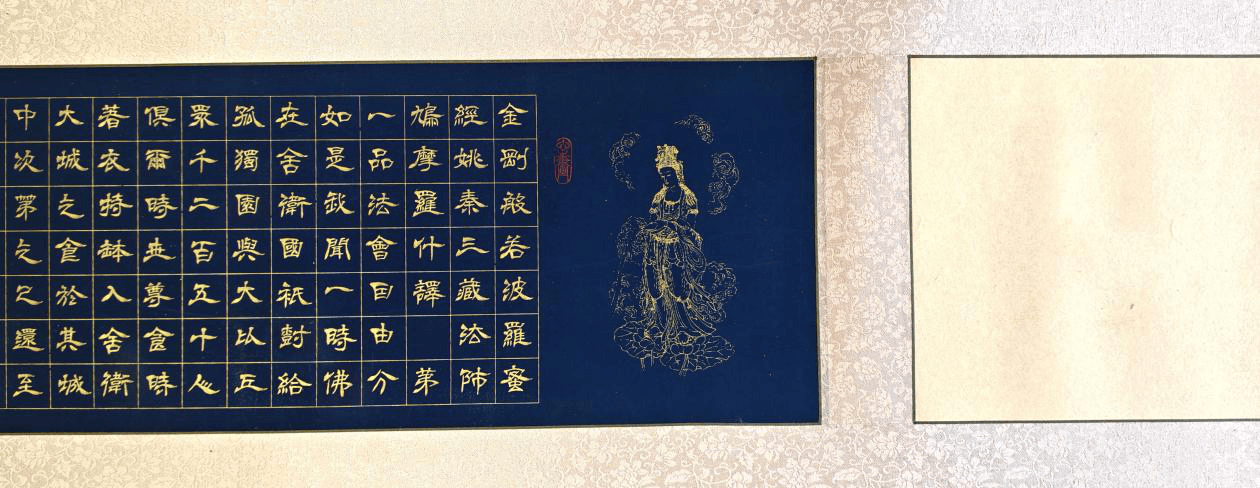 金剛般若波羅蜜
經姚秦三藏法師
鳩摩羅什譯　第
一品法會因由分
如是我聞一時佛
在舍衛國祇樹給
孤獨園與大比丘
眾千二百五十人
俱爾時世尊食時
著衣持缽入舍衛
大城乞食於其城
中次第乞已還至